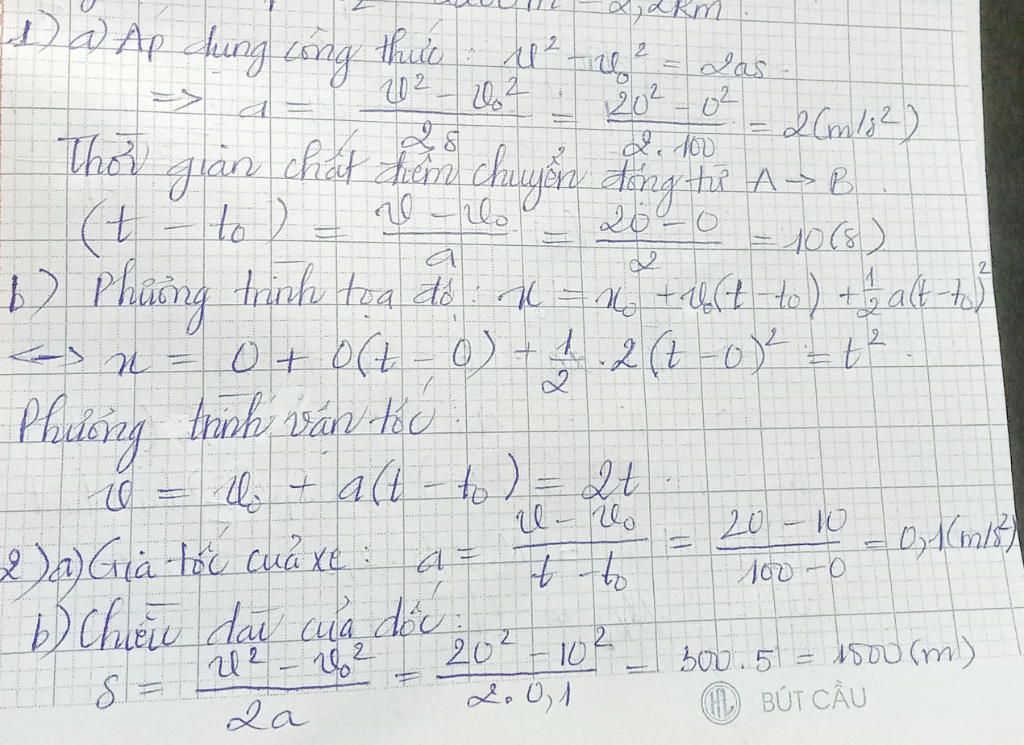 = 2200m = 2,2km.
1) a) Áp dụng công thức: v² - v₀² = 2as.
=> a = (v² - v₀²)/(2s) = (20² - 0²)/(2.100) = 2(m/s²)
Thời gian chất điểm chuyển động từ A → B.
(t - t₀) = (v - v₀)/a = (20 - 0)/2 = 10(s)
b) Phương trình tọa độ: x = x₀ + v₀(t - t₀) + 1/2 a(t - t₀)²
<-> x = 0 + 0(t - 0) + 1/2 . 2(t - 0)² = t².
Phương trình vận tốc:
v = v₀ + a(t - t₀) = 2t.
2) a) Gia tốc của xe: a = (v - v₀)/(t - t₀) = (20 - 10)/(100 - 0) = 0,1(m/s²)
b) Chiều dài của dốc:
s = (v² - v₀²)/(2a) = (20² - 10²)/(2.0,1) = 300.5 = 1500(m)
HL BÚT CẦU